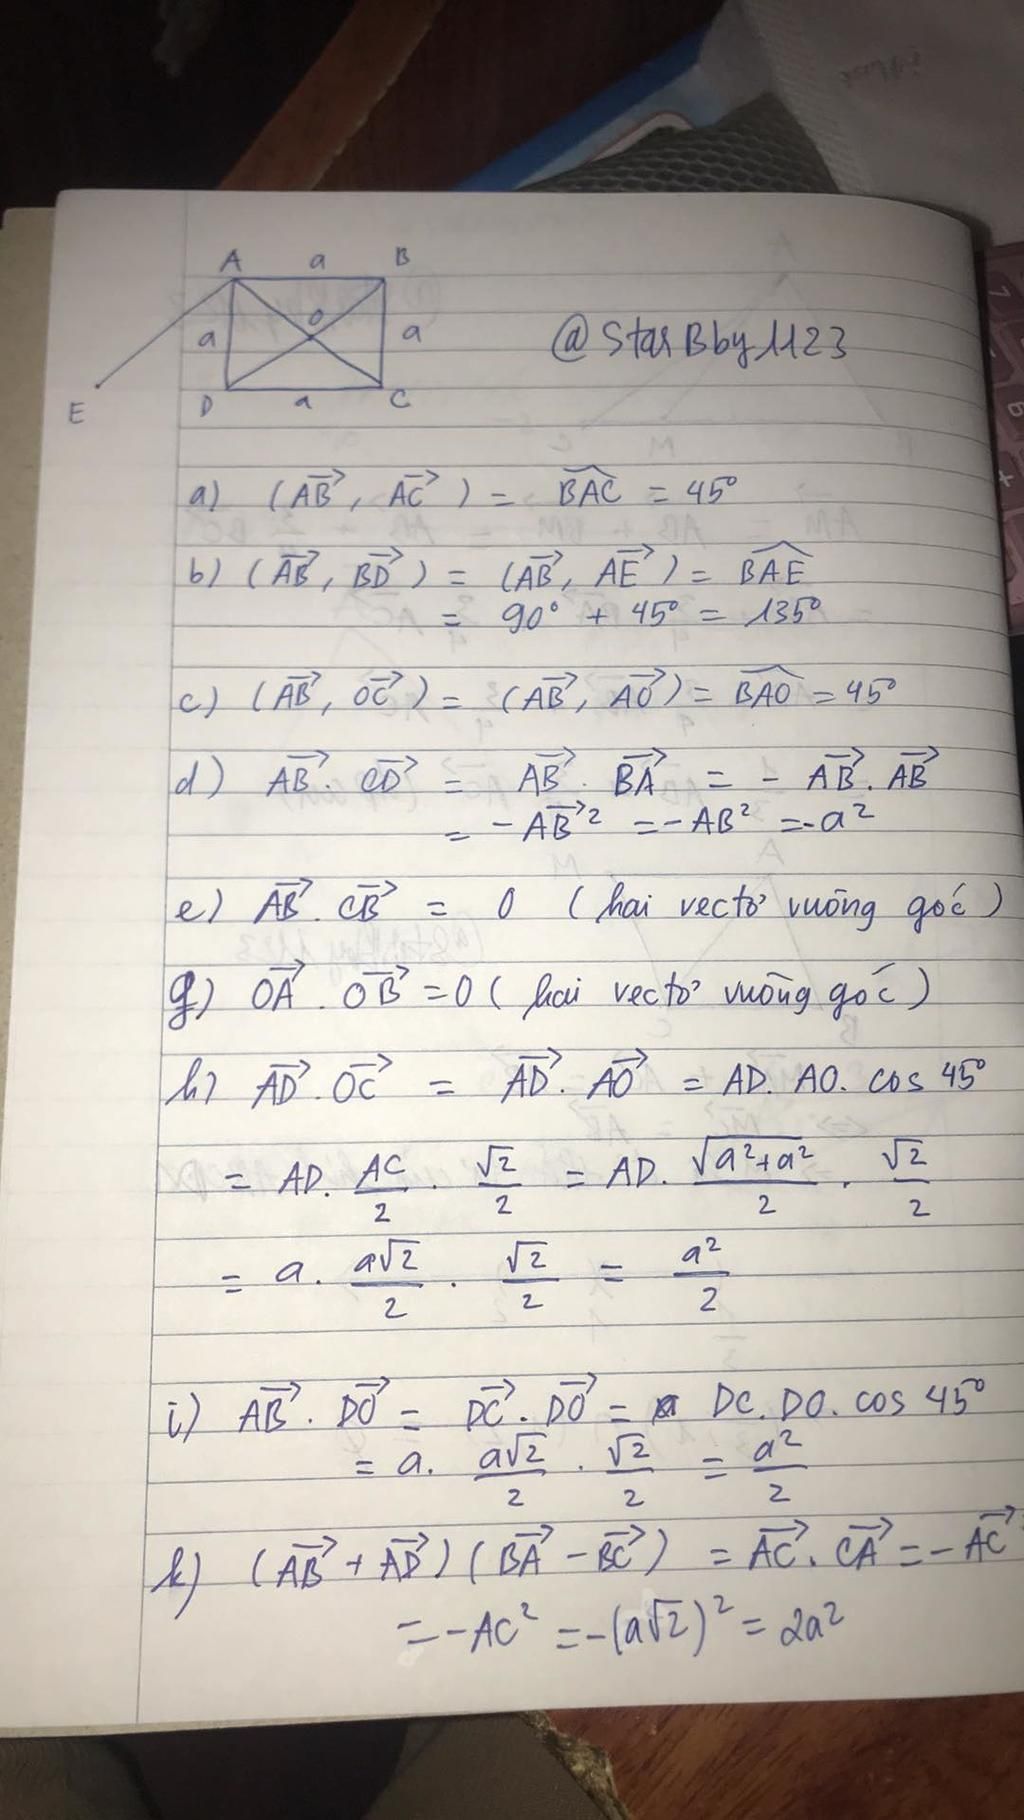 A a B
a O a
E D a C
@StarBby1123
a) (AB→, AC→) = BAC^ = 45°
b) (AB→, BD→) = (AB→, AE→) = BAE^
= 90° + 45° = 135°
c) (AB→, OC→) = (AB→, AO→) = BAO^ = 45°
d) AB→ . CD→ = AB→ . BA→ = - AB→ . AB→
= -AB→² = -AB² = -a²
e) AB→ . CB→ = 0 (hai vectơ vuông góc)
g) OA→ . OB→ = 0 (hai vectơ vuông góc)
h) AD→ . OC→ = AD→ . AO→ = AD. AO. cos 45°
= AD. AC/2 . √2/2 = AD. √(a²+a²)/2 . √2/2
= a. a√2/2 . √2/2 = a²/2
i) AB→ . DO→ = DC→ . DO→ = DC. DO. cos 45°
= a. a√2/2 . √2/2 = a²/2
k) (AB→ + AD→) (BA→ - BC→) = AC→ . CA→ = - AC→
= -AC² = -(a√2)² = 2a²